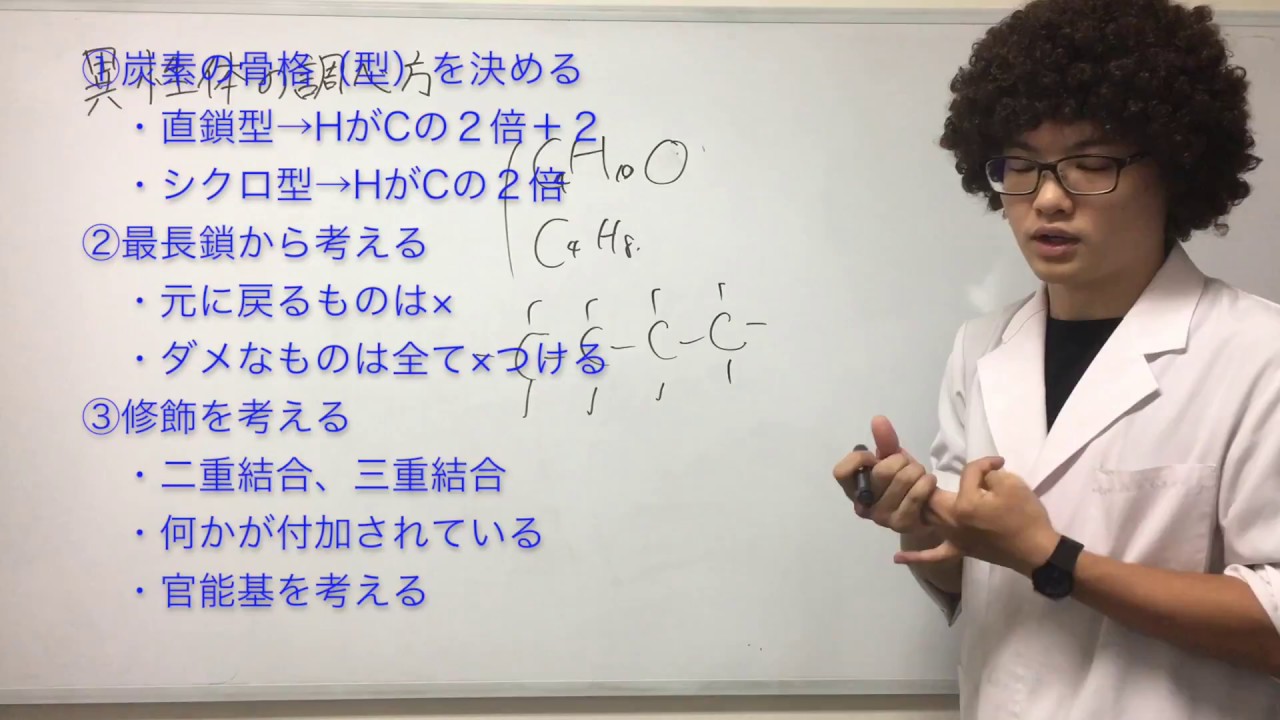 異性体の調べ方
①炭素の骨格（型）を決める
・直鎖型→HがCの２倍＋２
・シクロ型→HがCの２倍
②最長鎖から考える
・元に戻るものは×
・ダメなものは全て×つける
③修飾を考える
・二重結合、三重結合
・何かが付加されている
・官能基を考える
C₄H₁₀O
C₄H₈.
C-C-C-C-